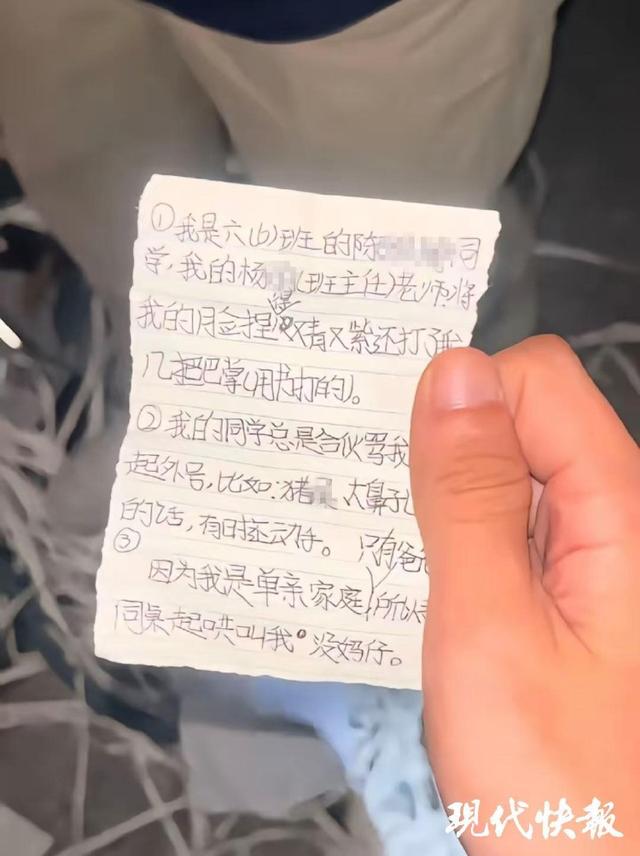 ①我是六(6)班的陈 同
学,我的杨 (班主任)老师将
我的脸捏得又青又紫还打了我
几把巴掌(用书打的)。
②我的同学总是合伙骂我
起外号,比如:猪 大鼻孔
的话,有时还动手。
③
只有爸
因为我是单亲家庭,所以
同桌起哄叫我 没妈仔。
现代快报